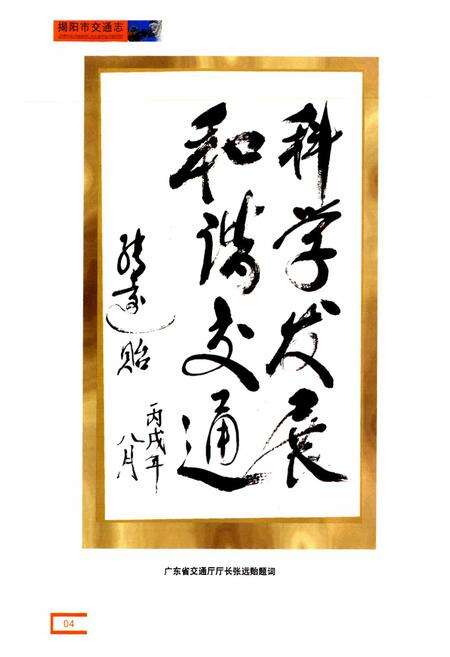 揭阳市交通志
科学发展
和谐交通
张远贻
丙戌年
八月
广东省交通厅厅长张远贻题词
04